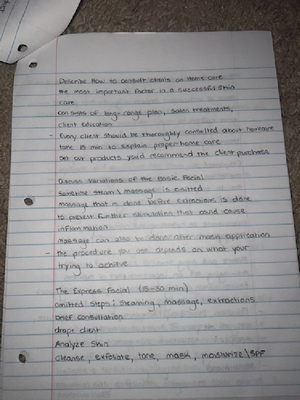 Describe How to consult clients on Home care
the most important factor in a successful skin
care
consists of long-range plan, salon treatments,
client education
- Every client should be thoroughly consulted about homecare
take 15 min to explain proper home care
Set out products you'd recommend the client purchase
Discuss variations of the Basic Facial
sometime steam & massage is omitted
massage that is done before extractions is done
to prevent further stimulation that could cause
inflammation
massage can also be done after mask application
- the procedure you use depends on what your
trying to achive
The Express Facial (15-30 min)
omitted steps: steaming, massage, extractions
brief consultation
drape client
Analyze skin
cleanse, exfoliate, tone, mask, moisturize \ SPF